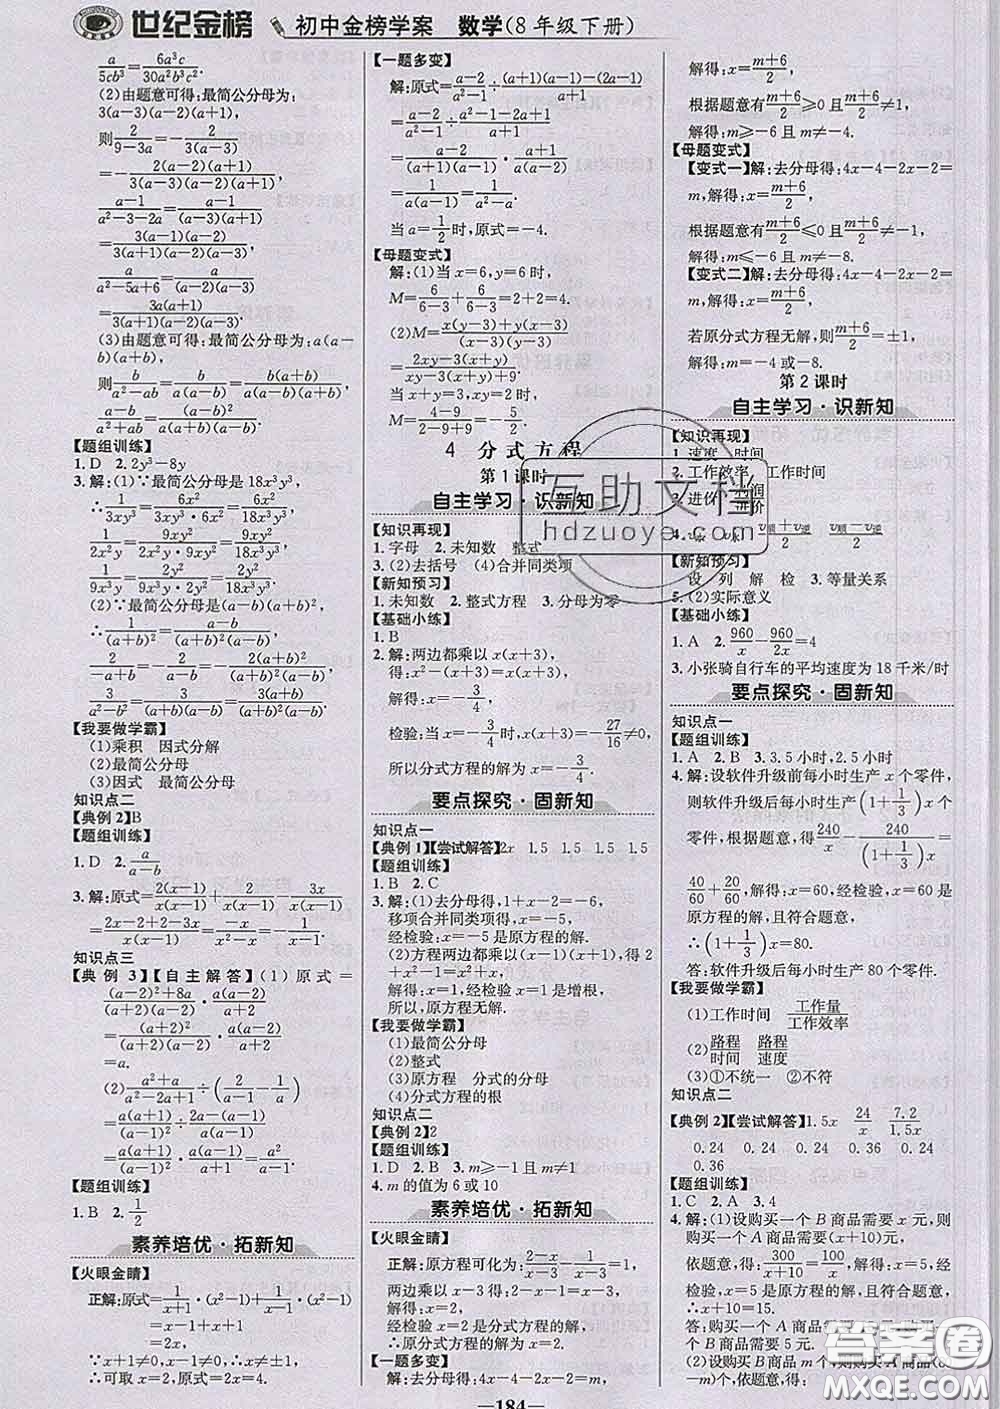 世纪金榜 初中金榜学案 数学(8年级下册)
a/(5cb³)=6a³c/(30a²b³c²).
(2)由题意可得:最简公分母为:
3(a-3)(a-2)(a+1),
则2/(9-3a)=-2/(3(a-3))
=-2(a-2)(a+1)/(3(a-3)(a-2)(a+1)),
(a-1)/(a²-3-2a)=(a-1)/((a-3)(a+1))
=3(a-1)(a-2)/(3(a-3)(a-2)(a+1)),
a/(a²-5a+6)=a/((a-2)(a-3))
=3a(a+1)/(3(a+1)(a-2)(a-3)).
(3)由题意可得:最简公分母为:a(a-b)(a+b),
则b/(a²-ab)=b/(a(a-b))=b(a+b)/(a(a-b)(a+b)),
a/(a²+ab)=a(a-b)/(a(a+b)(a-b)).
【题组训练】
1.D 2.2y³-8y
3.解:(1)∵最简公分母是18x³y³,
∴1/(3x³y)=6y²/(3x³y·6y²)=6y²/(18x³y³),
1/(2x²y)=9xy²/(2x²y·9xy²)=9xy²/(18x³y³),
1/(9x³y²)=2y/(9x³y²·2y)=2y/(18x³y³).
(2)∵最简公分母是(a-b)(a+b)²,
∴1/(a+b)²=(a-b)/((a+b)²(a-b)),
2/(b-a)=-2/(a-b)=-2(a+b)²/((a-b)(a+b)²),
3/(a²-b²)=3/((a+b)(a-b))=3(a+b)/((a+b)²(a-b)).
【我要做学霸】
(1)乘积 因式分解
(2)最简公分母
(3)因式 最简公分母
知识点二
【典例2】B
【题组训练】
1.D 2.a/(a-b)
3.解:原式=2(x-1)/(x(x-1))+2/(x(x-1))-3x/(x(x-1))
=(2x-2+2-3x)/(x(x-1))=-x/(x²-x)=-1/(x-1).
知识点三
【典例3】【自主解答】(1)原式=
((a-2)²+8a)/((a+2)(a-2))·a(a-2)/(a+2)
=(a+2)²/((a+2)(a-2))·a(a-2)/(a+2)
=a.
(2)(a²+a)/(a²-2a+1)÷(2/(a-1)-1/a)
=a(a+1)/(a-1)²÷(a+1)/(a(a-1))
=a(a+1)/(a-1)²·a(a-1)/(a+1)=a²/(a-1).
【题组训练】
1.B 2.1/2
素养培优·拓新知
【火眼金睛】
正解:原式=1/(x+1)·(x²-1)+1/(x-1)·(x²-1)
=x-1+x+1
=2x,
∵x+1≠0,x-1≠0,∴x≠±1,
∴可取x=2,则2x=4.
【一题多变】
解:原式=(a-2)/(a²-1)÷((a+1)(a-1)-(2a-1))/(a+1)
=(a-2)/(a²-1)÷(a²-1-2a+1)/(a+1)
=(a-2)/((a+1)(a-1))·(a+1)/(a(a-2))
=1/(a(a-1))=1/(a²-a).
当a=1/2时,原式=-4.
【母题变式】
解:(1)当x=6,y=6时,
M=6/(6-3)+6/(6-3)=2+2=4.
(2)M=(x(y-3)+y(x-3))/((x-3)(y-3))
=(2xy-3(x+y))/(xy-3(x+y)+9).
当x+y=3,xy=2时,
M=(4-9)/(2-9+9)=-5/2.
4 分式方程
第1课时
自主学习·识新知
【知识再现】
1.字母 2.未知数 整式
3.(2)去括号 (4)合并同类项
【新知预习】
1.未知数 2.整式方程 3.分母为零
【基础小练】
1.B
2.解:两边都乘以x(x+3),
得:x²-(x-1)(x+3)=x(x+3),
解得:x=-3/4,
检验:当x=-3/4时,x(x+3)=-27/16≠0,
所以分式方程的解为x=-3/4.
要点探究·固新知
知识点一
【典例1】【尝试解答】2x 1.5 1.5 1.5 1.5
【题组训练】
1.B 2.C
3.解:(1)去分母得,1+x-2=-6,
移项合并同类项得,x=-5,
经检验:x=-5是原方程的解.
(2)方程两边都乘以(x-1)(x+1),得2+
x²-1-x²-x=0,
解得x=1,经检验x=1是增根,
所以,原方程无解.
【我要做学霸】
(1)最简公分母
(2)整式
(3)原方程 分式的分母
(4)分式方程的根
知识点二
【典例2】2
【题组训练】
1.D 2.B 3.m≥-1且m≠1
4.m的值为6或10
素养培优·拓新知
【火眼金睛】
正解:原方程可化为:(2-x)/(x-3)-1/(x-3)=1,
两边乘以x-3得:2-x-1=x-3,
解得:x=2,
经检验x=2是分式方程的解,
∴原分式方程的解为x=2.
【一题多变】
解:去分母得:4x-4-2x-2=m,
解得:x=(m+6)/2,
根据题意有(m+6)/2≥0且(m+6)/2≠1,
解得:m≥-6且m≠-4.
【母题变式】
【变式一】解:去分母得:4x-4-2x-2=
m,解得:x=(m+6)/2,
根据题意有(m+6)/2≤0且(m+6)/2≠-1,
解得:m≤-6且m≠-8.
【变式二】解:去分母得:4x-4-2x-2=
m,解得:x=(m+6)/2,
若原分式方程无解,则(m+6)/2=±1,
解得:m=-4或-8.
第2课时
自主学习·识新知
【知识再现】
1.速度 时间
2.工作效率 工作时间
3.进价 利润/进价
【新知预习】
设 列 解 检 3.等量关系
5.(2)实际意义
【基础小练】
1.A 2.960/x-960/2x=4
3.小张骑自行车的平均速度为18千米/时
要点探究·固新知
知识点一
【题组训练】
1.A 2.B 3.3.5小时,2.5小时
4.解:设软件升级前每小时生产x个零件,
则软件升级后每小时生产(1+1/3)x个
零件,根据题意,得240/x-240/((1+1/3)x)=
40/60+20/60,解得:x=60,经检验,x=60是
原方程的解,且符合题意,
∴(1+1/3)x=80.
答:软件升级后每小时生产80个零件.
【我要做学霸】
(1)工作时间 工作量/工作效率
(2)路程/时间 路程/速度
(3)①不统一 ②不符
知识点二
【典例2】【尝试解答】1.5x 24/x 7.2/1.5x
0.24 0.24 0.24 0.24 0.24
0.36
【题组训练】
1.C 2.A 3.4
4.解:(1)设购买一个B商品需要x元,则
购买一个A商品需要(x+10)元,
依题意,得:300/(x+10)=100/x,解得:x=5,经
检验,x=5是原方程的解,且符合题意,
∴x+10=15.
答:购买一个A商品需要15元,
购买一个B商品需要5元.
(2)设购买B商品m个,则购买A商品(80
互助文档
hdzuoye.com
答案圈
MXQE.COM
—184—